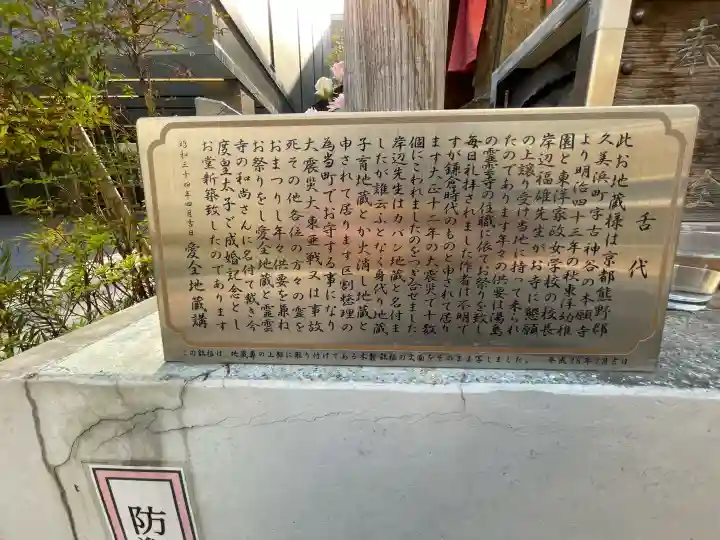 舌代
此お地蔵様は京都熊野郡
久美浜町字古神谷の本願寺
より明治四十三年の秋東洋幼稚
園と東洋家政女学校の校長
岸辺福雄先生がお寺に懇願
の上譲り受け当地に持って来られ
たのであります年々の供要は湯島
の霊雲寺の住職に依てお祭りを致し
毎日礼拝されました作者は不明で
すが鎌倉時代のものと申されて居り
ます大正十二年の大震災で十数
個にこわれましたのをつぎ合せました
岸辺先生はカバン地蔵と名付ま
したが誰云ふとなく身代り地蔵、
子育地蔵とか火消し地蔵と
申されて居ります区劃整理の
為当町でお守する事になり
大震災大東亜戦又は事故
死その他各位の方々の霊を
おまつりし年々供要を兼ね
お祭りをし愛全地蔵と霊雲
寺の和尚さんに名付て戴き今
度皇太子ご成婚記念とし
お堂新築致したのであります
昭和三十四年四月吉日 愛全地蔵講
この銘板は、地蔵尊の上部に取り付けてある木製銘板の文面をそのまま写しました。 平成28年7月吉日
奉
防